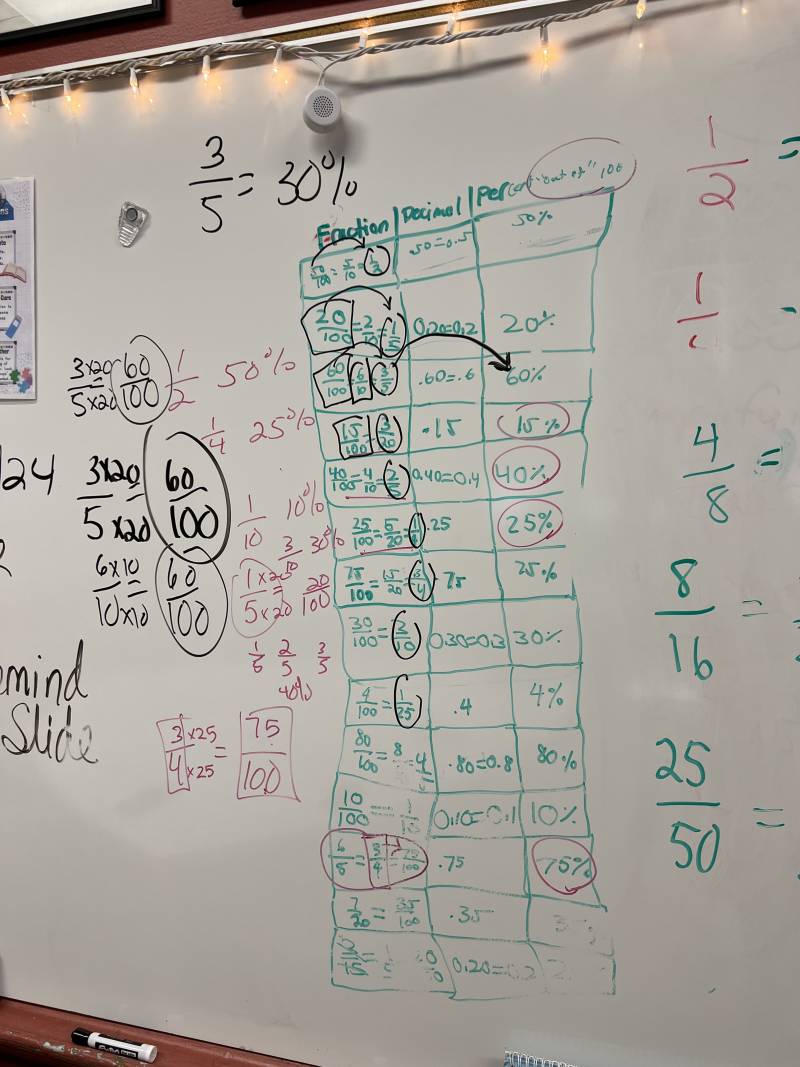 3/5 = 30%
Fraction | Decimal | Percent "out of" 100
50/100 = 5/10 = 1/2 | .50=0.5 | 50%
20/100 = 2/10 = 1/5 | 0.20=0.2 | 20%
60/100 = 6/10 = 3/5 | .60=.6 | 60%
15/100 = 3/20 | .15 | 15%
40/100 = 4/10 = 2/5 | 0.40=0.4 | 40%
25/100 = 5/20 = 1/4 | .25 | 25%
75/100 = 15/20 = 3/4 | 75
30/100 = 3/10 | 0.30=0.3 | 30%
4/100 = 1/25 | .4 | 4%
80/100 = 8 = 4 | .80=0.8 | 80%
10/100 = 1/10 | 0.10=0.1 | 10%
= 3/4 = 75/100 | .75 | 75%
7/20 = 35/100 | .35
0.20=0.2
3×20/5×20 60/100
24
3×20/5×20 = 60/100
6×10/10×10 = 60/100
mind
Slide
1/2 50%
1/4 25%
1/10 10%
3/10 30%
1×20/5×20 = 20/100
1/5 2/5 3/5
40%
3×25/4×25 = 75/100
1/2 =
1
4/8 =
8/16 =
25/50 =